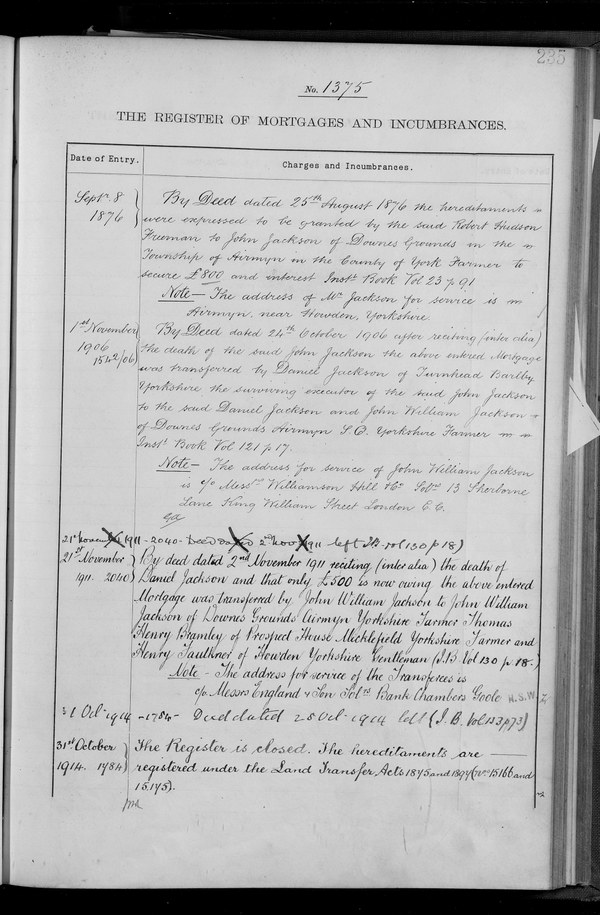 235
No. 1375
THE REGISTER OF MORTGAGES AND INCUMBRANCES.
Date of Entry.
Charges and Incumbrances.
Septr. 8
1876
By Deed dated 25th August 1876 the hereditaments
were expressed to be granted by the said Robert Hudson
Freeman to John Jackson of Downes Grounds in the
Township of Airmyn in the County of York Farmer to
secure £800 and interest Instt. Book Vol 23 p 91
Note — The address of Mr. Jackson for service is
Airmyn, near Howden, Yorkshire.
1st November
1906
1542/06
By Deed dated 24th October 1906 after reciting (inter alia)
the death of the said John Jackson the above entered Mortgage
was transferred by Daniel Jackson of Turnhead Barlby
Yorkshire the surviving executor of the said John Jackson
to the said Daniel Jackson and John William Jackson
of Downes Grounds Airmyn S.O. Yorkshire Farmer
Instt. Book Vol 121 p 17.
Note — The address for service of John William Jackson
is c/o Messrs. Williamson Hill & Co. Solrs. 13 Sherborne
Lane King William Street London E.C.
21st November 1911 - 2040 - Deed dated 2nd Nov 1911 left I.B. vol 130 p 18)
21st November
1911. 2040
By deed dated 2nd November 1911 reciting (inter alia) the death of
Daniel Jackson and that only £500 is now owing the above entered
Mortgage was transferred by John William Jackson to John William
Jackson of Downes Grounds Airmyn Yorkshire Farmer Thomas
Henry Bramley of Prospect House Micklefield Yorkshire Farmer and
Henry Faulkner of Howden Yorkshire Gentleman (I.B. Vol 130 p. 18.)
Note - The address for service of the Transferees is
c/o Messrs England & Son Solrs Bank Chambers Goole
H.S.W.
31 Oct 1914 - 1784 - Deed dated 25 Oct 1914 left (I.B. Vol 133 p 73)
31st October
1914. 1784)
The Register is closed. The hereditaments are
registered under the Land Transfer Acts 1875 and 1897 (Nos. 15166 and
15175).